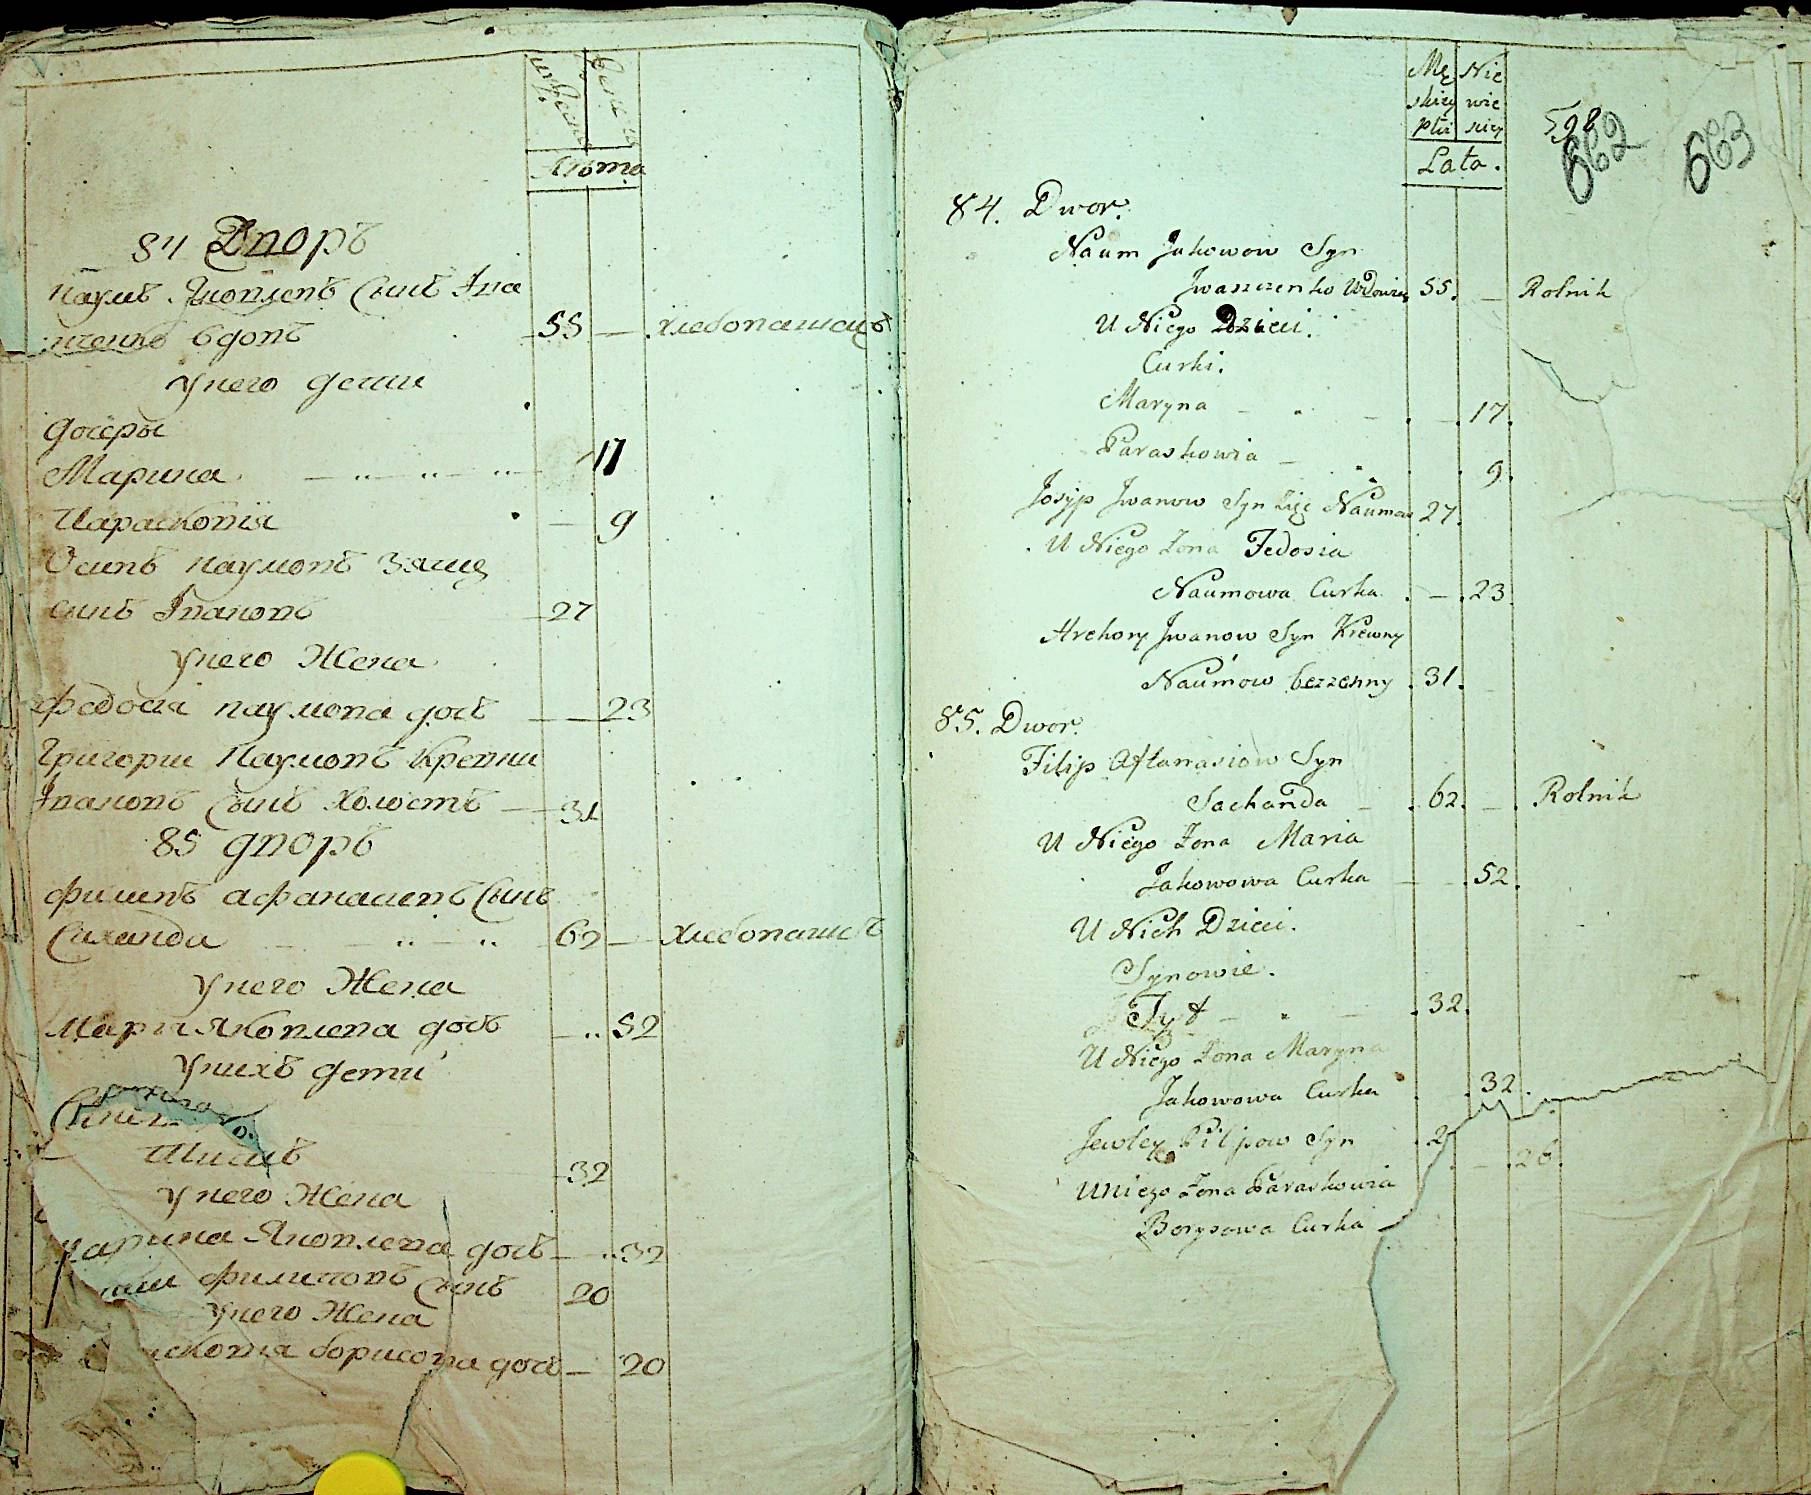 Лѣта
84 Дворъ
Наумъ Яковлевъ Сынъ Ива
щенко вдовъ 55 — хлебопашецъ
У него дети
дочеры
Марина 17
Парасковія — 9
Осипъ Наумовъ Зять
сынъ Івановъ 27
У него Жена
Федосія Наумова дочь — 23
Григории Наумовъ Кревни
Івановъ Сынъ Холостъ — 31
85 дворъ
Филипъ Афанасиевъ Сынъ
Саханда 62 — Хлебопашецъ
У него Жена
Маря Яковлева дочь — 52
У нихъ дети
Титъ 32
У него Жена
Марина Яковлева дочь — 32
Филиповъ Сынъ 20
У него Жена
борисова дочь — 20
Mę Nie
skiey wie
płci sciey
Lata.
598
662 663
84. Dwor.
Naum Jakowow Syn
Jwaszczenko Wdowiec 55. — Rolnik
U Niego Dzieci.
Curki.
Maryna — — 17.
Paraskowia — 9.
Josyp Jwanow Syn Zięć Naumow 27.
U Niego Zona Fedosia
Naumowa Curka . — . 23.
Hrehory Jwanow Syn Krewny
Naumow bezzenny . 31. —
85. Dwor.
Filip Aftanasiow Syn
Sachanda — . 62. — . Rolnik
U Niego Zona Maria
Jakowowa Curka — — . 52.
U Nich Dzieci.
Synowie.
Tyt — — . 32.
U Niego Zona Maryna
Jakowowa Curka . . 32.
Jewtey Filipow Syn . 2
U Niego Zona Paraskowia — . 26.
Borysowa Curka —